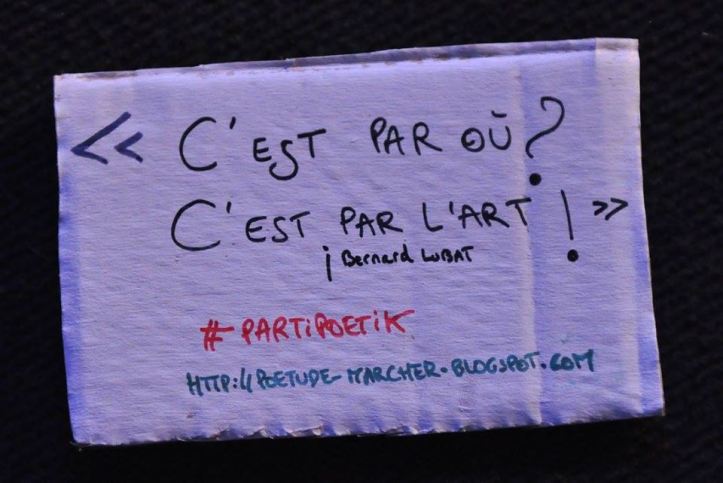 « C'EST PAR OÙ ?
C'EST PAR L'ART ! »
¡ Bernard LUBAT
#PARTiPOETiK
HTTP://POETUDE-MARCHER.BLOGSPOT.COM